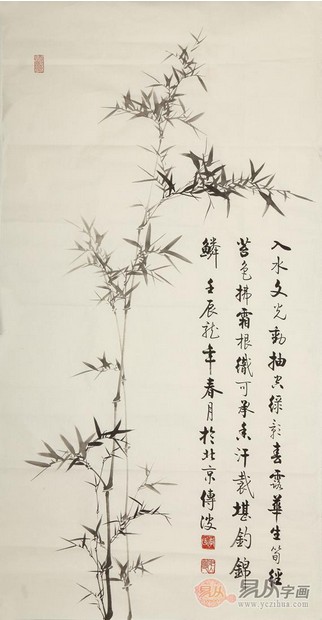 入水文光動抽空緑影春露華生筍徑
苔色拂霜根織可承香汗裁堪釣錦
鱗 壬辰龍年春月於北京傳波
易从字画
www.yczihua.com